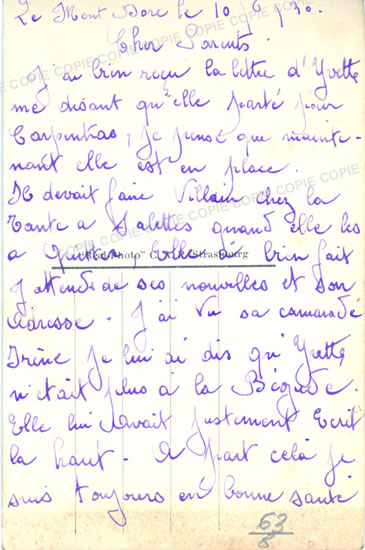 Le Mont Dore le 10 6 30.
Cher Parents.
J'ai bien reçu la lettre d'Yvette
me disant qu'elle parté pour
Carpentras, je pense que mainte-
nant elle est en place.
Il devait faire Villain chez la
Tante a Salettes quand elle les
a quitter, Elle bien fait
J'attend de ses nouvelles et son
Adresse. J'ai Vu sa camarade
Irène je lui ai dis qu'Yvette
n'était plus à la Bégude.
Elle lui Avait justement Ecrit
la haut. A part celà je
suis toujours en bonne santé
"Real-Photo" C. A. P. Strasbourg
63
COPIE COPIE COPIE COPIE COPIE COPIE